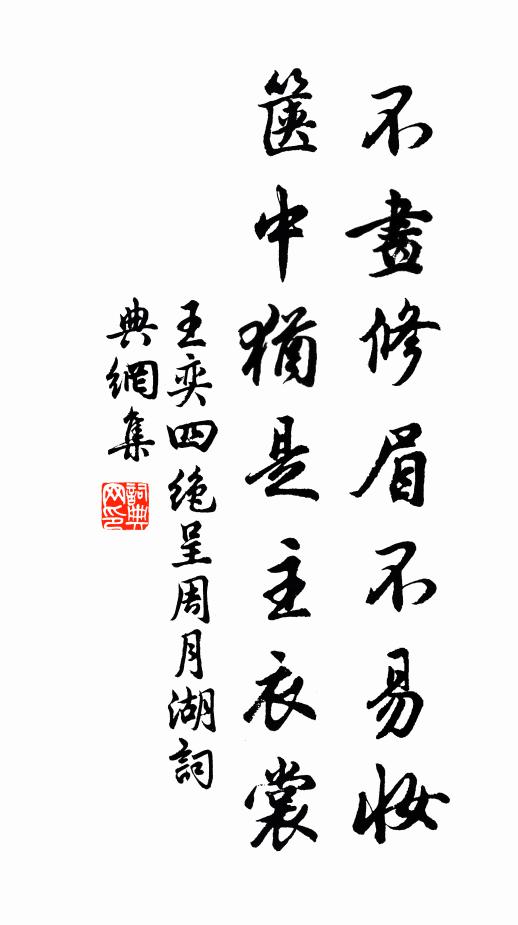 不畫修眉不易妝
篋中猶是主衣裳
王奕四絶呈周月湖詞
典網集
詞典網印